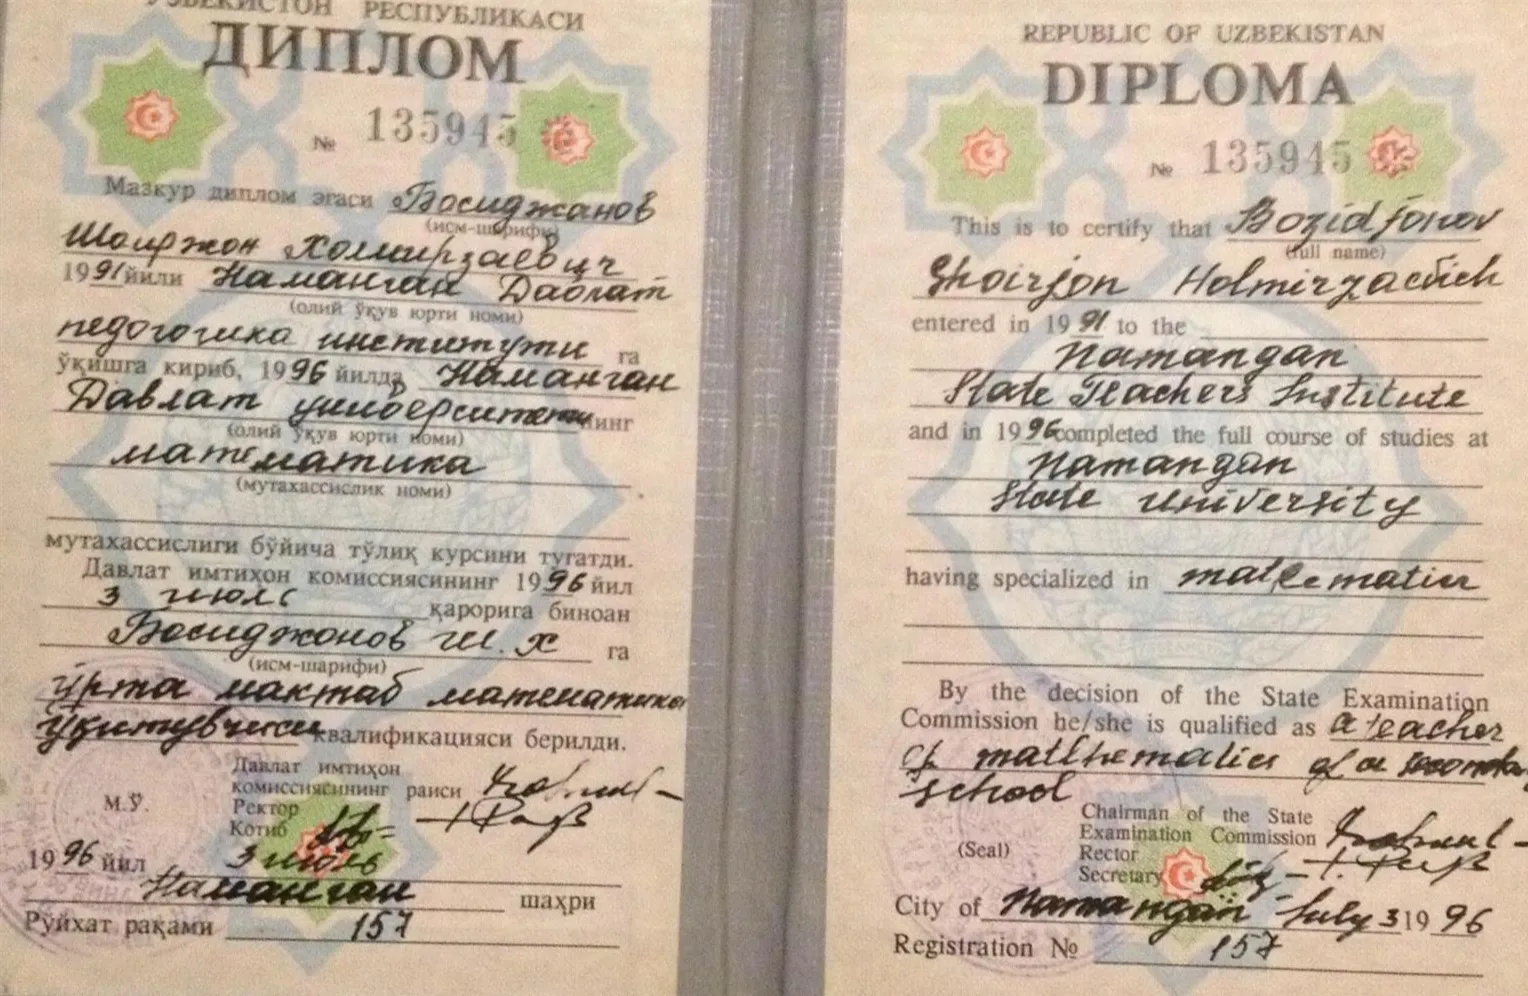 ЎЗБЕКИСТОН РЕСПУБЛИКАСИ
ДИПЛОМ
№ 135945
Мазкур диплом эгаси Босиджанов
(исм-шарифи)
Шоиржон Холмирзаевич
1991 йили Наманган Давлат
(олий ўқув юрти номи)
педогогика институти га
ўқишга кириб, 1996 йилда Наманган
Давлат университетининг
(олий ўқув юрти номи)
математика
(мутахассислик номи)
мутахассислиги бўйича тўлиқ курсини тугатди.
Давлат имтиҳон комиссиясининг 1996 йил
3 июль қарорига биноан
Босиджонов Ш. Х га
(исм-шарифи)
ўрта мактаб математика
ўқитувчиси квалификацияси берилди.
Давлат имтиҳон
комиссиясининг раиси
М.Ў.
Ректор
Котиб
1996 йил 3 июль
Наманган шаҳри
Рўйхат рақами 157
REPUBLIC OF UZBEKISTAN
DIPLOMA
№ 135945
This is to certify that Bozidjonov
(full name)
Shoirjon Holmirzaevich
entered in 1991 to the
Namangan
State Teachers Institute
and in 1996 completed the full course of studies at
Namangan
State university
having specialized in mathematics
By the decision of the State Examination
Commission he/she is qualified as a teacher
of mathematics of a secondary
school
Chairman of the State
Examination Commission
(Seal)
Rector
Secretary
City of Namangan July 3 1996
Registration № 157